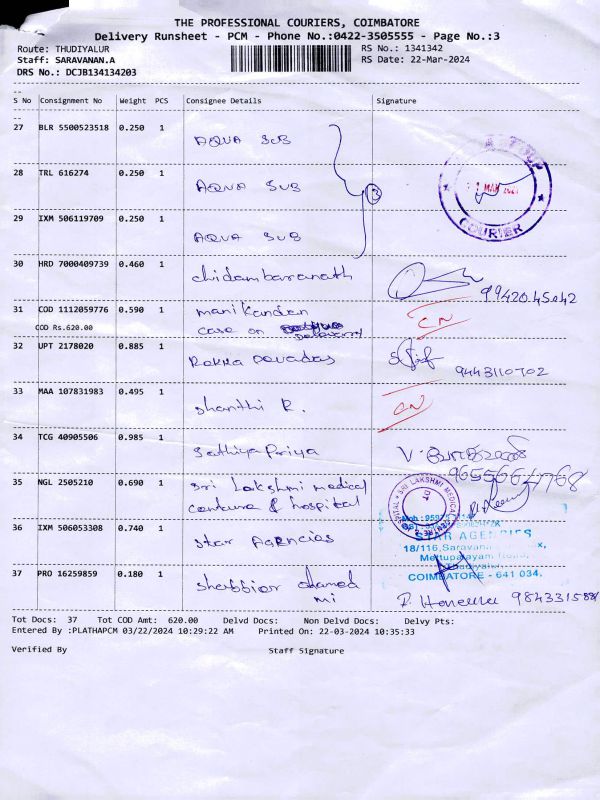 THE PROFESSIONAL COURIERS, COIMBATORE
Delivery Runsheet - PCM - Phone No.:0422-3505555 - Page No.:3
Route: THUDIYALUR RS No.: 1341342
Staff: SARAVANAN.A RS Date: 22-Mar-2024
DRS No.: DCJB134134203
S No Consignment No Weight PCS Consignee Details Signature
27 BLR 5500523518 0.250 1 AQUA SUB
28 TRL 616274 0.250 1 AQUA SUB
29 IXM 506119709 0.250 1 AQUA SUB
3
COURIER
30 HRD 7000409739 0.460 1 chidambaranath
99420 45042
31 COD 1112059776 0.590 1 manikandan CN
COD Rs.620.00 case on Delivery
32 UPT 2178020 0.885 1 Rokka Devadas 9443110702
33 MAA 107831983 0.495 1 shanthi R. CN
34 TCG 40905506 0.985 1 Sathiya Priya
9655664768
35 NGL 2505210 0.690 1 Sri Lakshmi medical
centure & hospital
SRI LAKSHMI MEDICAL
36 IXM 506053308 0.740 1 Star AGencies
STAR AGENCIES
18/116,
Mettupalayam
COIMBATORE - 641 034.
37 PRO 16259859 0.180 1 shabbier ahamed
mi
Tot Docs: 37 Tot COD Amt: 620.00 Delvd Docs: Non Delvd Docs: Delvy Pts:
Entered By :PLATHAPCM 03/22/2024 10:29:22 AM Printed On: 22-03-2024 10:35:33
Verified By Staff Signature